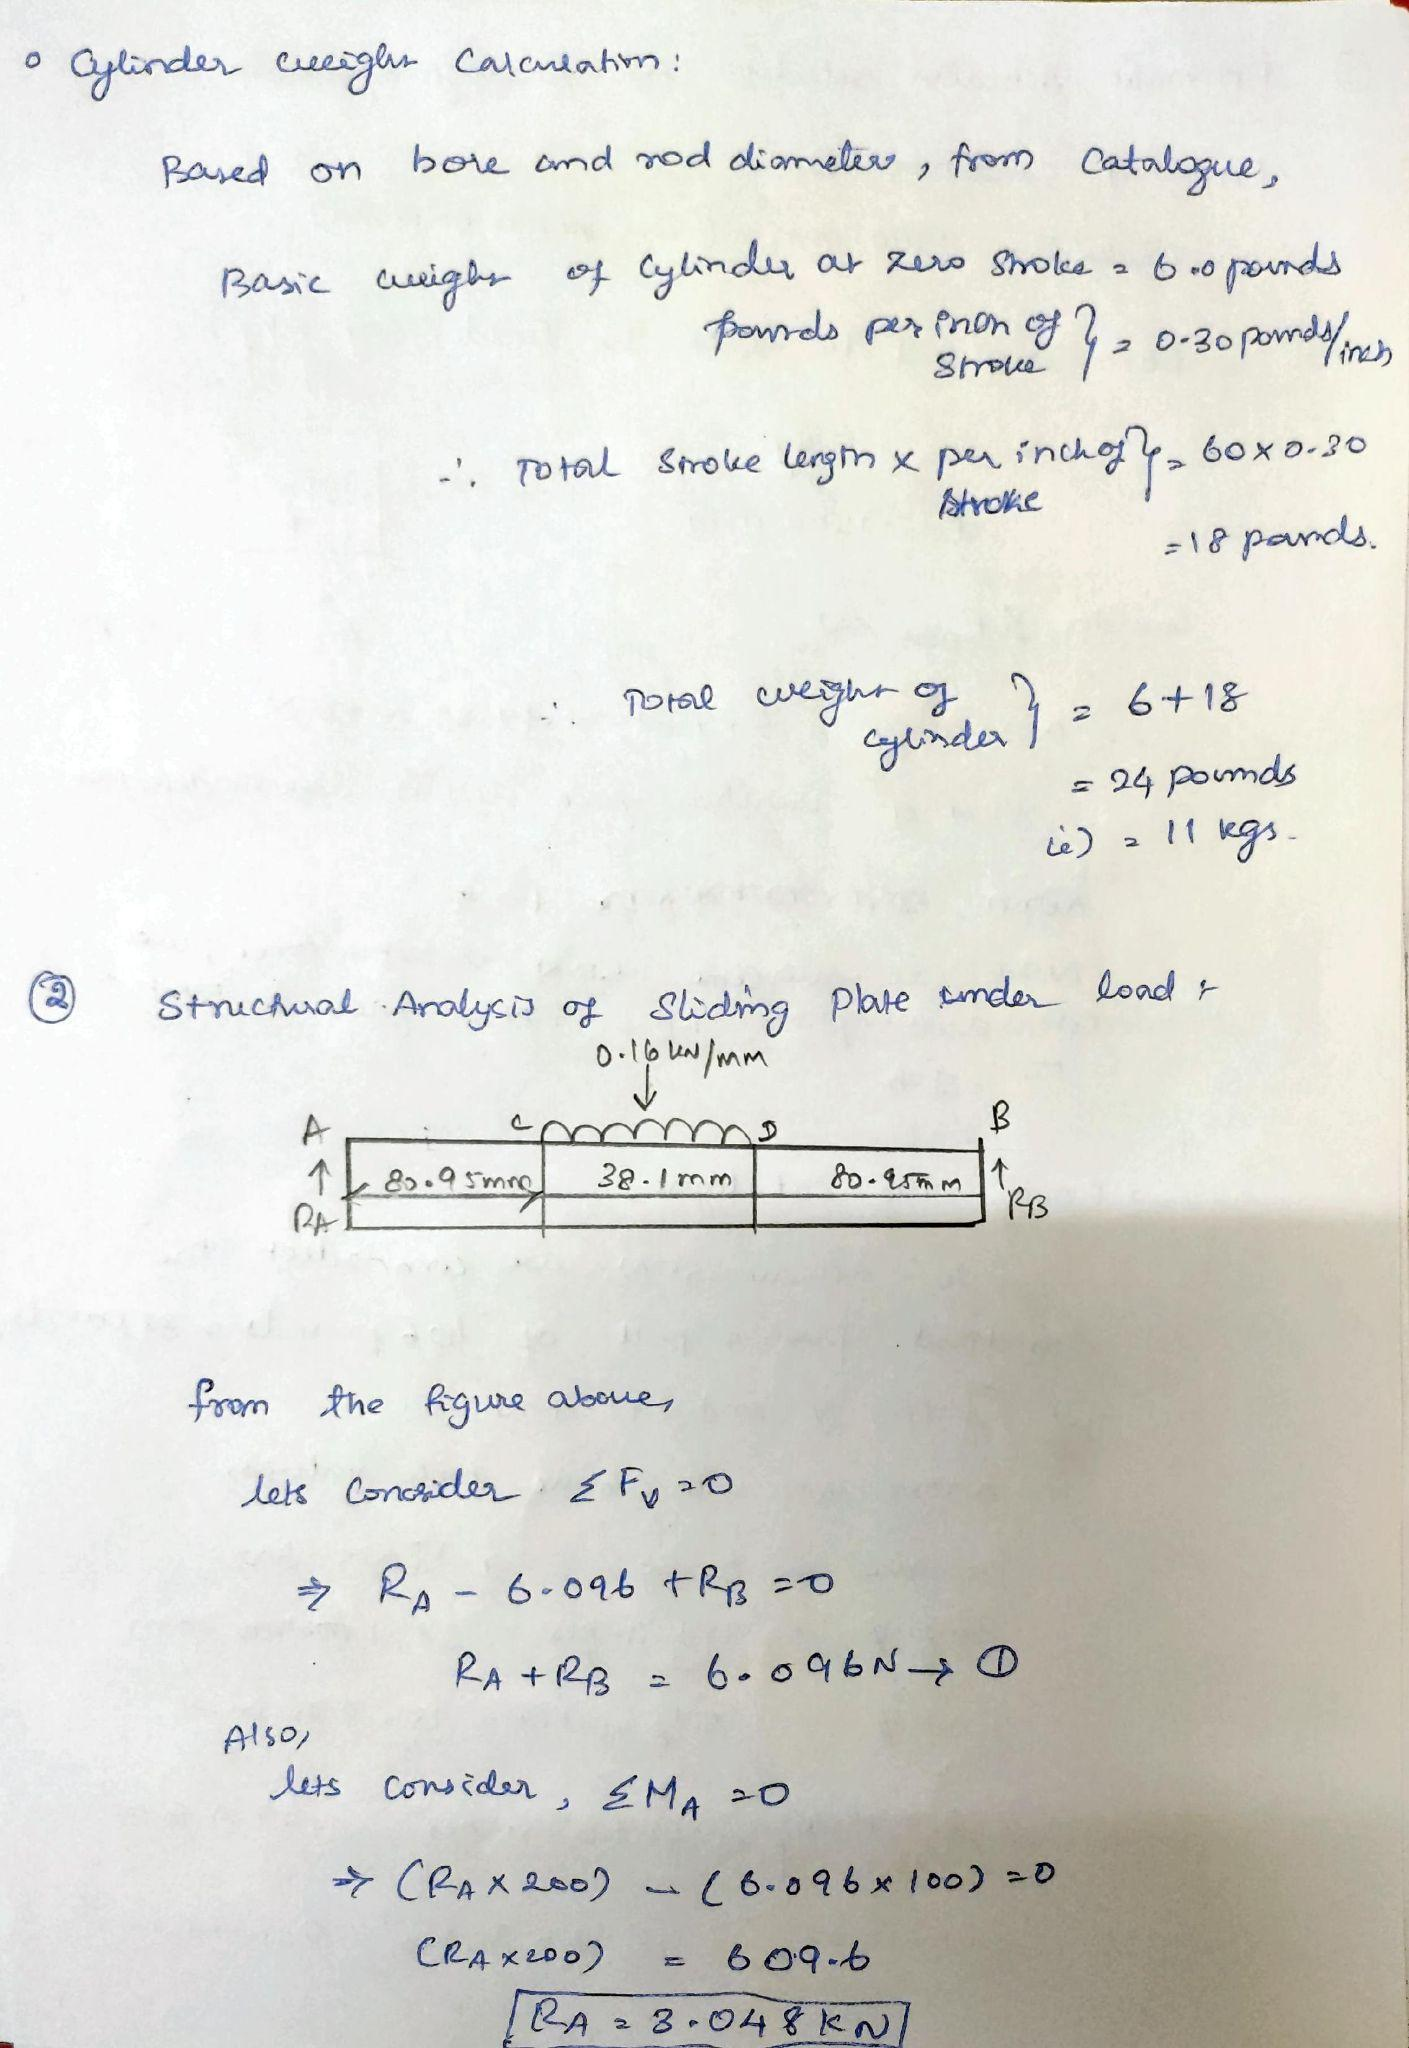 o Cylinder weight Calculation:
Based on bore and rod diameter, from Catalogue,
Basic weight of Cylinder at zero Stroke = 6.0 pounds
pounds per inch of Stroke } = 0.30 pounds/inch
∴ Total Stroke length x per inch of Stroke } = 60 x 0.30
= 18 pounds.
∴ Total weight of cylinder } = 6+18
= 24 pounds
ie) = 11 kgs.
② Structural Analysis of Sliding Plate under load :
0.16 kN/mm
A C D B
↑ 80.95mm 38.1mm 80.95mm ↑
RA RB
from the figure above,
lets Consider ΣFv = 0
⇒ RA - 6.096 + RB = 0
RA + RB = 6.096N → ①
Also,
lets consider, ΣMA = 0
⇒ (RA x 200) - (6.096 x 100) = 0
(RA x 200) = 609.6
RA = 3.048 KN